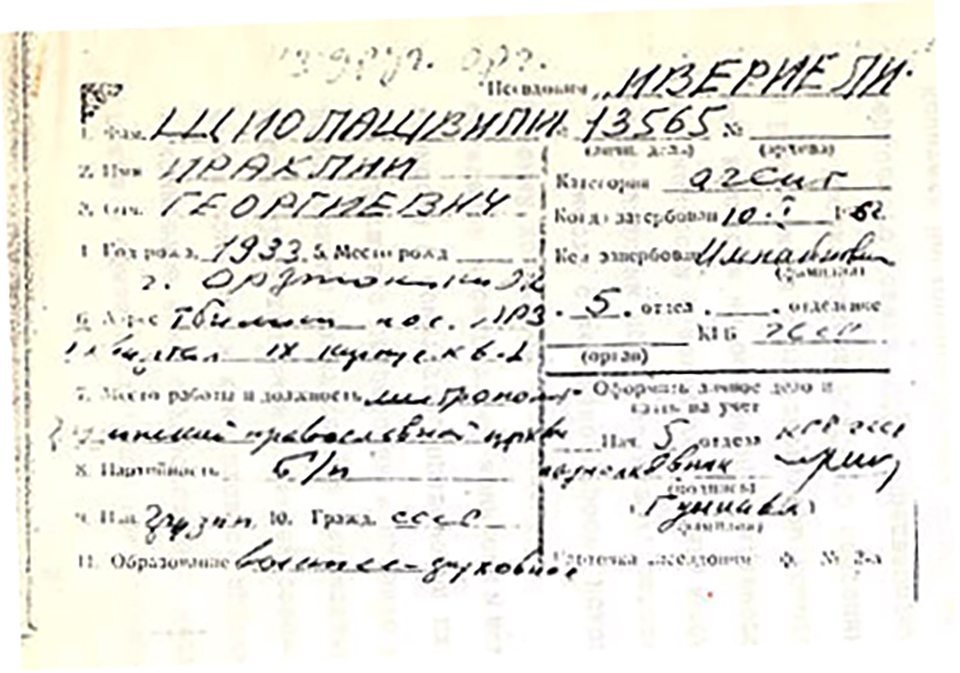 из друг. орг.
Псевдоним ИВЕРИЕЛИ
1. Фам. ШИОЛАШВИЛИ № 13565 №
(личн. дела) (архива)
2. Имя ИРАКЛИЙ
Категория агент
3. Отч. ГЕОРГИЕВИЧ
Когда завербован 10.I 1962.
4. Год рожд. 1933. 5. Место рожд.
Кем завербован
(фамилия)
г. Орджоникидзе
5. отдел отделение
6. Адрес Тбилиси пос.
КГБ ГССР
квартал IX корпус. кв-
(орган)
7. Место работы и должность митрополит
Оформить личное дело и
взять на учет
Грузинской православной церкви
Нач. 5 отдела КГБ ГССР
8. Партийность б/п
подполковник
(подпись)
9. Нац. грузин 10. Гражд. СССР
(фамилия)
11. Образование высшее-духовное
Карточка ф. № 2-а